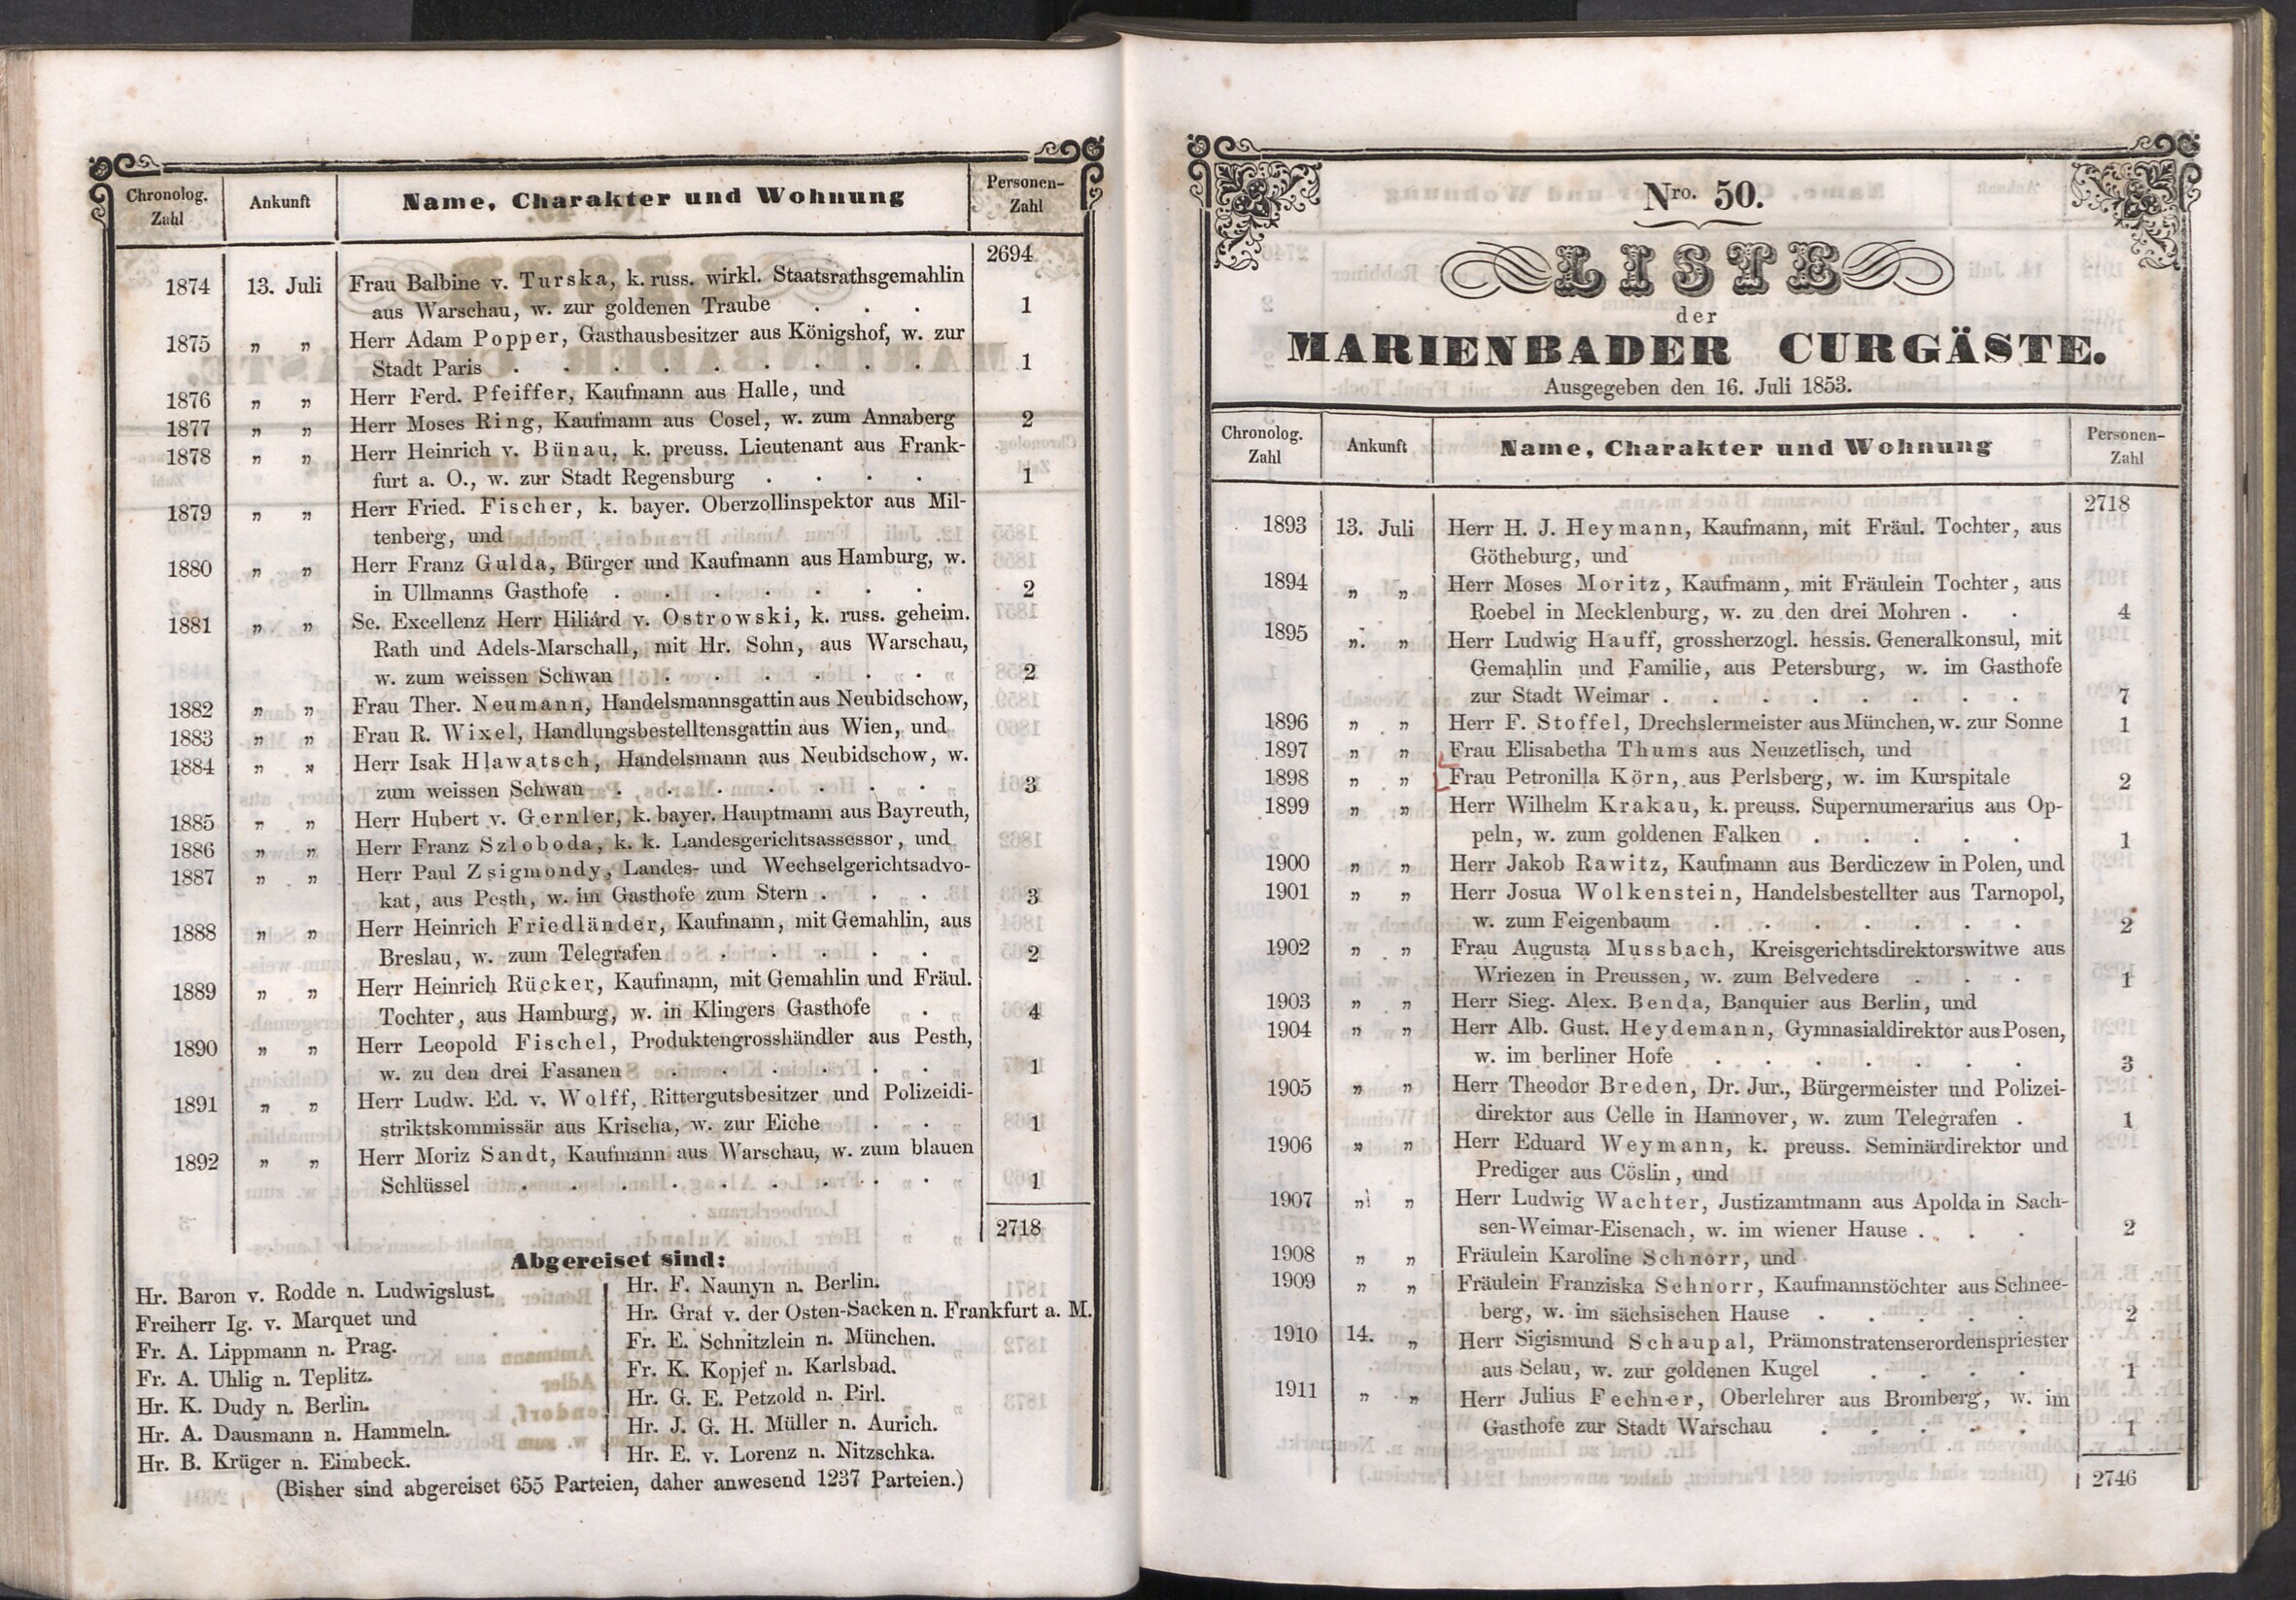 Chronolog. Zahl
Ankunft
Name, Charakter und Wohnung
Personen-Zahl
2694
1874 13. Juli Frau Balbine v. Turska, k. russ. wirkl. Staatsrathsgemahlin
aus Warschau, w. zur goldenen Traube . . . 1
1875 „ „ Herr Adam Popper, Gasthausbesitzer aus Königshof, w. zur
Stadt Paris . . . . . . . . . 1
1876 „ „ Herr Ferd. Pfeiffer, Kaufmann aus Halle, und
1877 „ „ Herr Moses Ring, Kaufmann aus Cosel, w. zum Annaberg 2
1878 „ „ Herr Heinrich v. Bünau, k. preuss. Lieutenant aus Frank-
furt a. O., w. zur Stadt Regensburg . . . . 1
1879 „ „ Herr Fried. Fischer, k. bayer. Oberzollinspektor aus Mil-
tenberg, und
1880 „ „ Herr Franz Gulda, Bürger und Kaufmann aus Hamburg, w.
in Ullmanns Gasthofe . . . . . . . 2
1881 „ „ Se. Excellenz Herr Hiliárd v. Ostrowski, k. russ. geheim.
Rath und Adels-Marschall, mit Hr. Sohn, aus Warschau,
w. zum weissen Schwan . . . . . . 2
1882 „ „ Frau Ther. Neumann, Handelsmannsgattin aus Neubidschow,
1883 „ „ Frau R. Wixel, Handlungsbestelltensgattin aus Wien, und
1884 „ „ Herr Isak Hlawatsch, Handelsmann aus Neubidschow, w.
zum weissen Schwan . . . . . . . 3
1885 „ „ Herr Hubert v. Gernler, k. bayer. Hauptmann aus Bayreuth,
1886 „ „ Herr Franz Szloboda, k. k. Landesgerichtsassessor, und
1887 „ „ Herr Paul Zsigmondy, Landes- und Wechselgerichtsadvo-
kat, aus Pesth, w. im Gasthofe zum Stern . . . 3
1888 „ „ Herr Heinrich Friedländer, Kaufmann, mit Gemahlin, aus
Breslau, w. zum Telegrafen . . . . . 2
1889 „ „ Herr Heinrich Rücker, Kaufmann, mit Gemahlin und Fräul.
Tochter, aus Hamburg, w. in Klingers Gasthofe . 4
1890 „ „ Herr Leopold Fischel, Produktengrosshändler aus Pesth,
w. zu den drei Fasanen . . . . . . 1
1891 „ „ Herr Ludw. Ed. v. Wolff, Rittergutsbesitzer und Polizeidi-
striktskommissär aus Krischa, w. zur Eiche . . 1
1892 „ „ Herr Moriz Sandt, Kaufmann aus Warschau, w. zum blauen
Schlüssel . . . . . . . . . 1
2718
Abgereiset sind:
Hr. Baron v. Rodde n. Ludwigslust.
Freiherr Ig. v. Marquet und
Fr. A. Lippmann n. Prag.
Fr. A. Uhlig n. Teplitz.
Hr. K. Dudy n. Berlin.
Hr. A. Dausmann n. Hammeln.
Hr. B. Krüger n. Eimbeck.
Hr. F. Naunyn n. Berlin.
Hr. Graf v. der Osten-Sacken n. Frankfurt a. M.
Fr. E. Schnitzlein n. München.
Fr. K. Kopjef n. Karlsbad.
Hr. G. E. Petzold n. Pirl.
Hr. J. G. H. Müller n. Aurich.
Hr. E. v. Lorenz n. Nitzschka.
(Bisher sind abgereiset 655 Parteien, daher anwesend 1237 Parteien.)
Nro. 50.
LISTE
der
MARIENBADER CURGÄSTE.
Ausgegeben den 16. Juli 1853.
Chronolog. Zahl
Ankunft
Name, Charakter und Wohnung
Personen-Zahl
2718
1893 13. Juli Herr H. J. Heymann, Kaufmann, mit Fräul. Tochter, aus
Götheburg, und
1894 „ „ Herr Moses Moritz, Kaufmann, mit Fräulein Tochter, aus
Roebel in Mecklenburg, w. zu den drei Mohren . . 4
1895 „ „ Herr Ludwig Hauff, grossherzogl. hessis. Generalkonsul, mit
Gemahlin und Familie, aus Petersburg, w. im Gasthofe
zur Stadt Weimar . . . . . . . . 7
1896 „ „ Herr F. Stoffel, Drechslermeister aus München, w. zur Sonne 1
1897 „ „ Frau Elisabetha Thums aus Neuzetlisch, und
1898 „ „ Frau Petronilla Körn, aus Perlsberg, w. im Kurspitale 2
1899 „ „ Herr Wilhelm Krakau, k. preuss. Supernumerarius aus Op-
peln, w. zum goldenen Falken . . . . . 1
1900 „ „ Herr Jakob Rawitz, Kaufmann aus Berdiczew in Polen, und
1901 „ „ Herr Josua Wolkenstein, Handelsbestellter aus Tarnopol,
w. zum Feigenbaum . . . . . . . 2
1902 „ „ Frau Augusta Mussbach, Kreisgerichtsdirektorswitwe aus
Wriezen in Preussen, w. zum Belvedere . . . 1
1903 „ „ Herr Sieg. Alex. Benda, Banquier aus Berlin, und
1904 „ „ Herr Alb. Gust. Heydemann, Gymnasialdirektor aus Posen,
w. im berliner Hofe . . . . . . . 3
1905 „ „ Herr Theodor Breden, Dr. Jur., Bürgermeister und Polizei-
direktor aus Celle in Hannover, w. zum Telegrafen . 1
1906 „ „ Herr Eduard Weymann, k. preuss. Seminärdirektor und
Prediger aus Cöslin, und
1907 „ „ Herr Ludwig Wachter, Justizamtmann aus Apolda in Sach-
sen-Weimar-Eisenach, w. im wiener Hause . . . 2
1908 „ „ Fräulein Karoline Schnorr, und
1909 „ „ Fräulein Franziska Schnorr, Kaufmannstöchter aus Schnee-
berg, w. im sächsischen Hause . . . . . 2
1910 14. „ Herr Sigismund Schaupal, Prämonstratenserordenspriester
aus Selau, w. zur goldenen Kugel . . . . 1
1911 „ „ Herr Julius Fechner, Oberlehrer aus Bromberg, w. im
Gasthofe zur Stadt Warschau . . . . . 1
2746